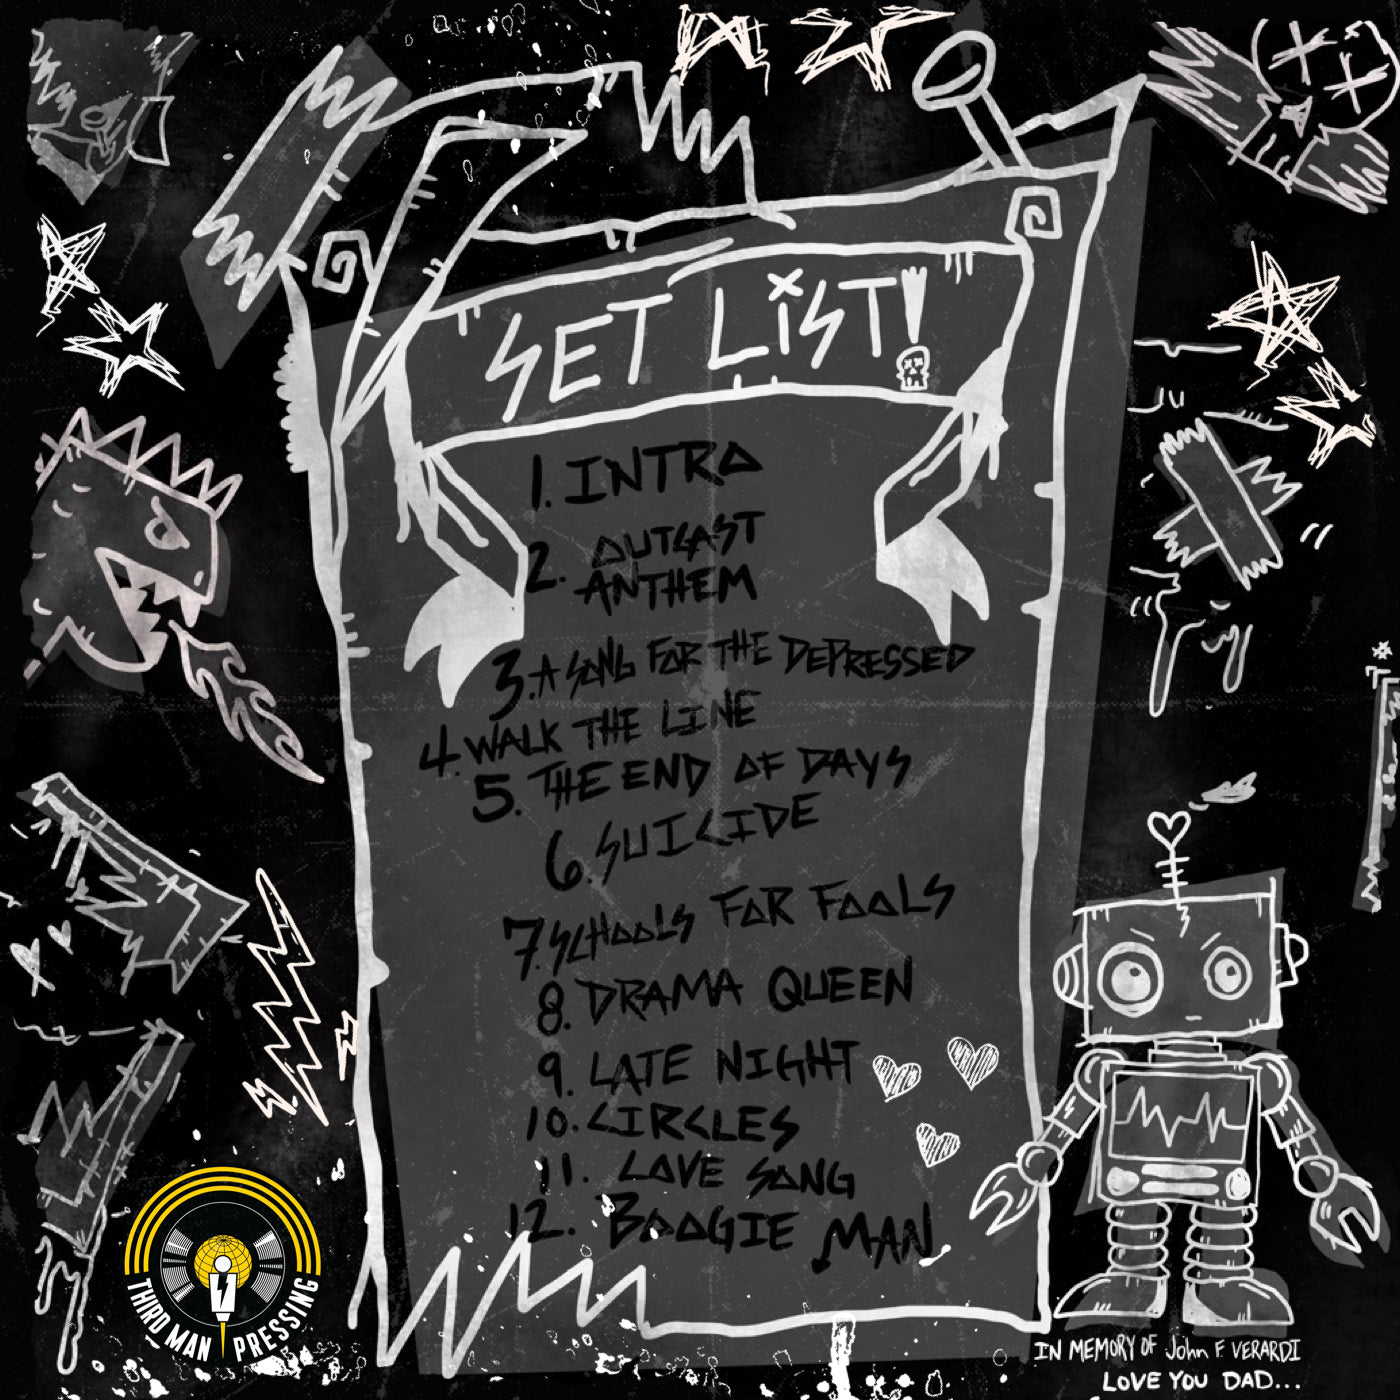 SET LiST!
1. INTRO
2. OUTCAST
ANTHEM
3. A SONG FOR THE DEPRESSED
4. WALK THE LINE
5. THE END OF DAYS
6. SUICIDE
7. SCHOOLS FOR FOOLS
8. DRAMA QUEEN
9. LATE NIGHT
10. CIRCLES
11. LOVE SONG
12. BOOGIE MAN
THIRD MAN PRESSING
IN MEMORY OF John F VERARDI
LOVE YOU DAD...